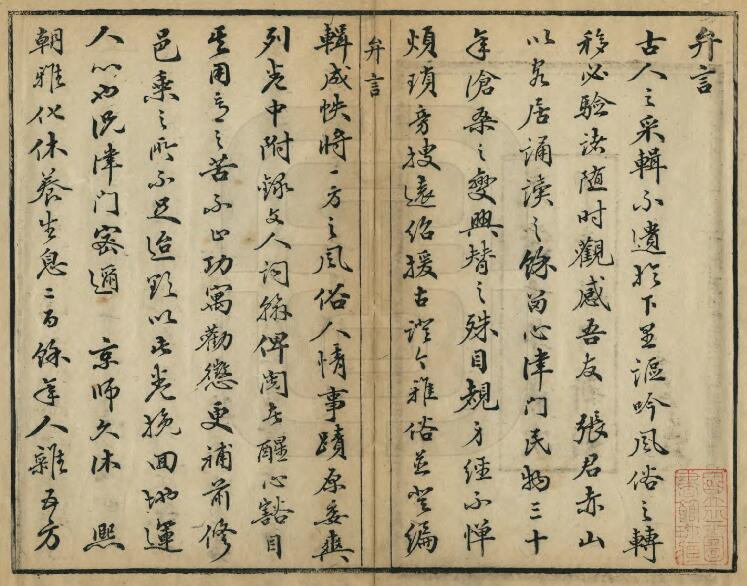 弁言
古人之采輯不遺於下里謳吟風俗之轉
移必驗諸随时觀感吾友 張君赤山
以家居誦读之餘留心津门民物三十
年滄桑之變興替之殊目覩身經不惮
煩瑣旁搜遠紹援古證今雅俗並登编
弁言
輯成帙将一方之風俗人情事蹟原委爽
列卷中附錄文人词翰俾閱者醒心豁目
其用意之苦不止功寓勸懲更補前修
邑乘之所不足迨欲以此卷挽回地運
人心也况津门密邇 京师久沐 熙
朝雅化休養生息二百餘年人雜五方